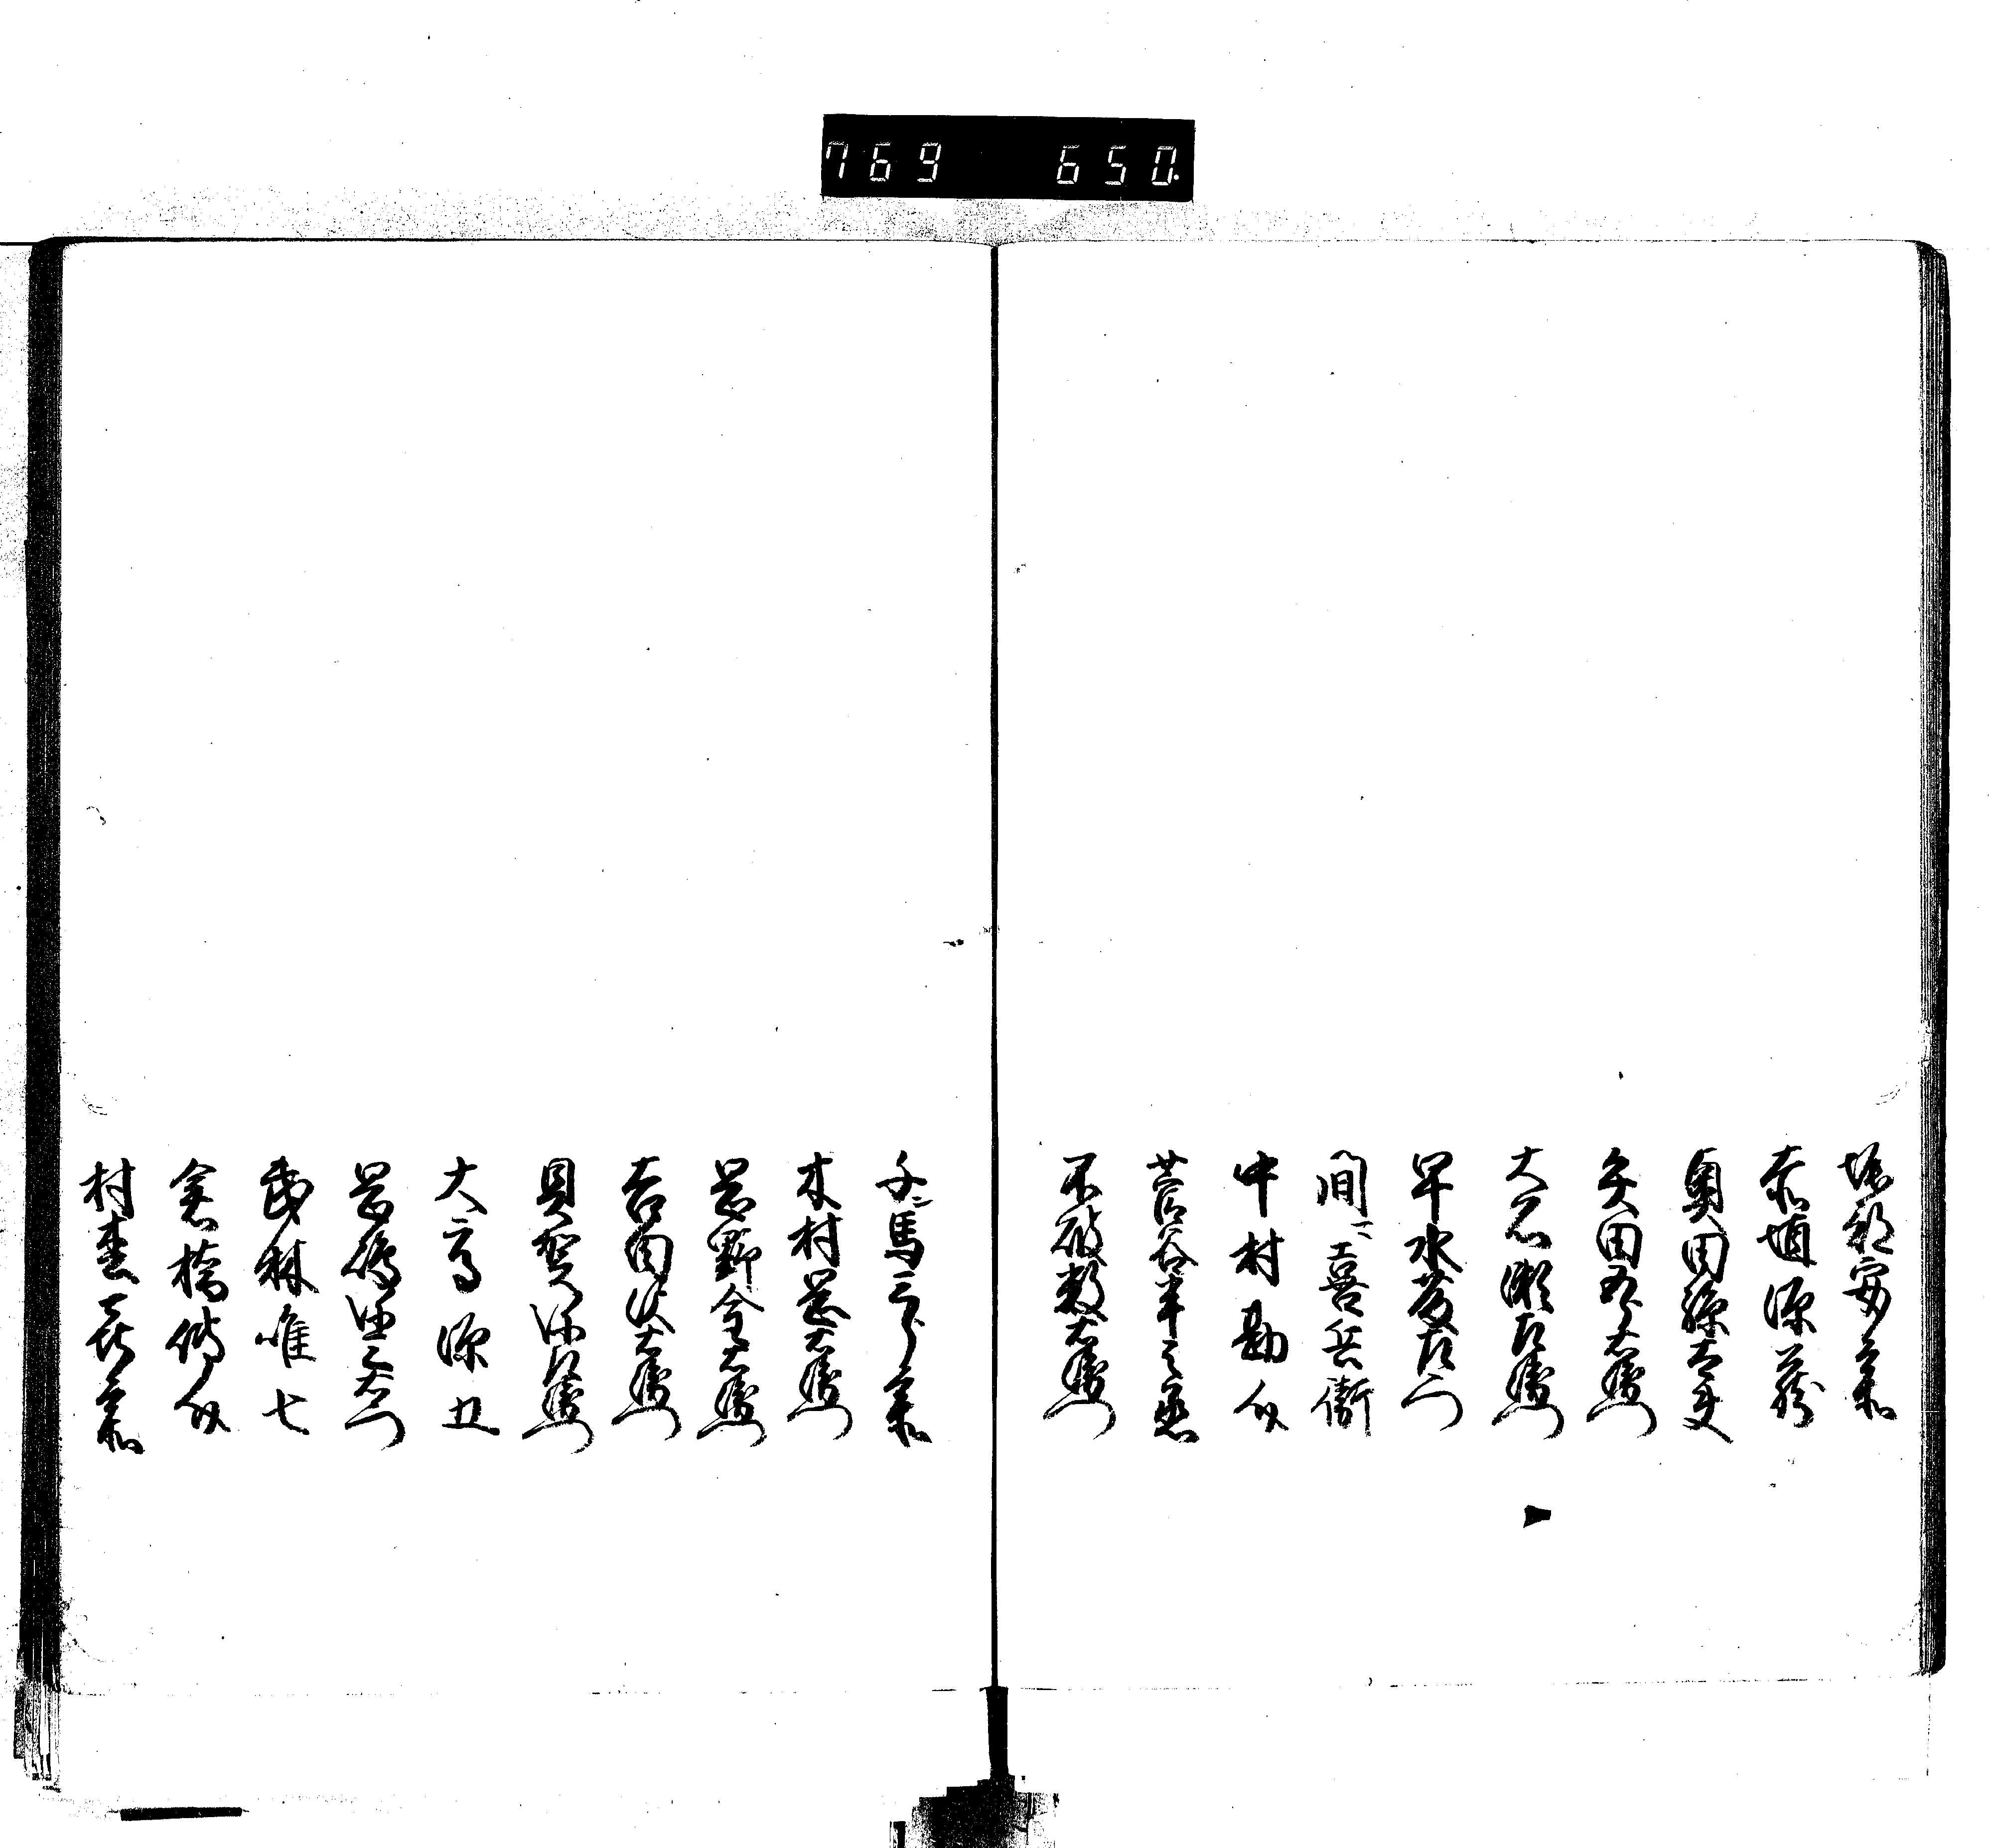 769 650.
堀部安兵衛
赤埴源蔵
奥田孫太夫
矢田五郎右衛門
大石瀬左衛門
早水藤左衛門
間喜兵衛
中村勘助
菅谷半之丞
不破数右衛門
千馬三郎兵衛
木村岡右衛門
岡野金右衛門
吉田沢右衛門
貝賀弥左衛門
大高源五
岡嶋八十右衛門
武林唯七
倉橋伝助
村松喜兵衛